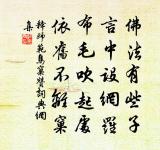 佛法有些子
言中設網羅
布毛吹起處
依舊不離窠
釋師範鳥窠贊詞典網
集